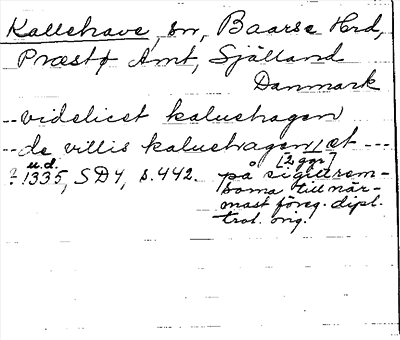 Kallehave, sn, Baarse Hrd,
Præstø Amt, Sjålland
Danmark
-- videlicet kaluehagen
-- de villis kaluehagen / et ---
u.d. [2 ggr]
? 1335, SD4, s. 442. på sigillrem-
sorna till när-
mast föreg. dipl.
trol. orig.